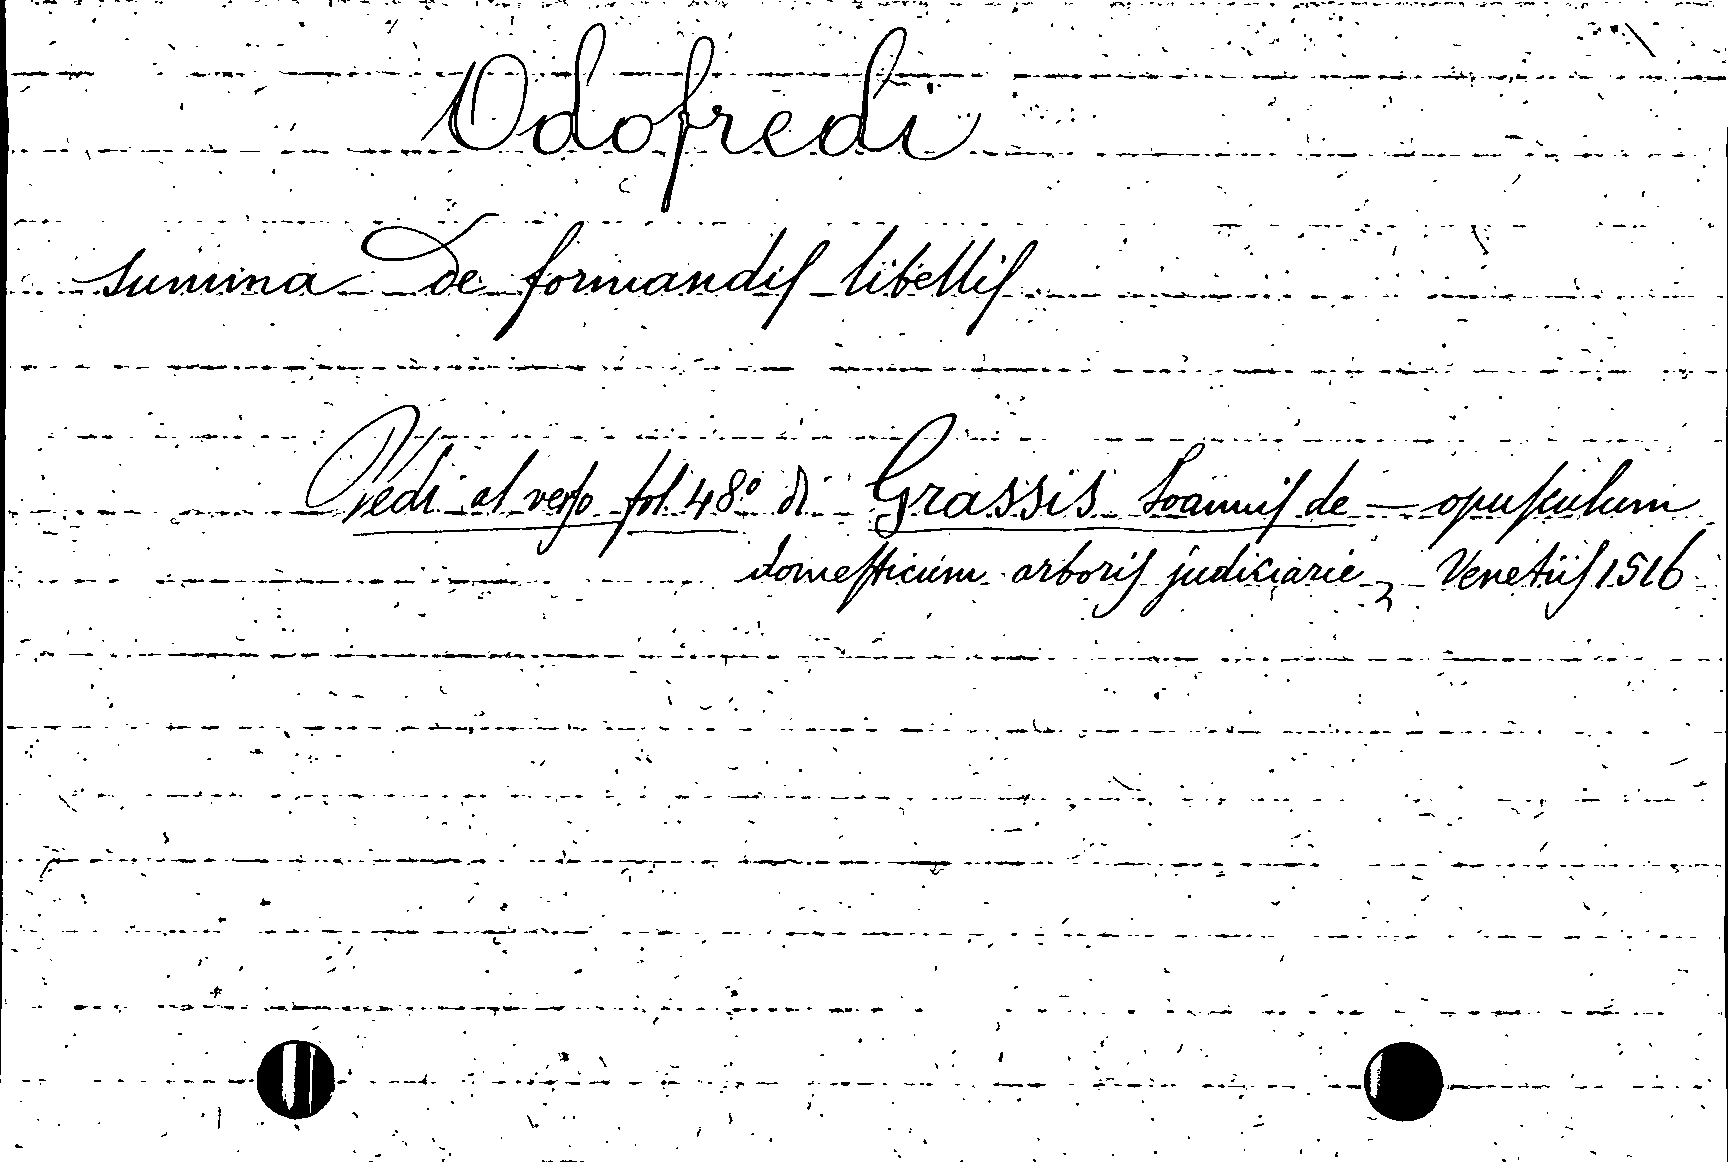 Odofredi
summa de formandis libellis
Vedi al verso fol 48º di Grassis Ioannis de – opusculum
domesticum arboris judiciarie, Venetiis 1516